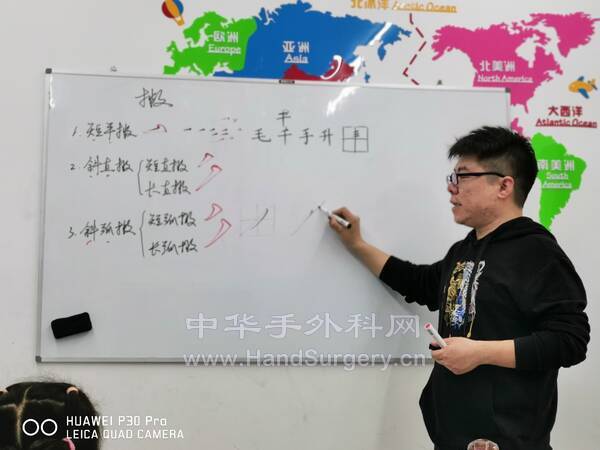 北冰洋 Arctic Ocean
一欧洲
Europe
亚洲
Asia
北美洲
North America
大西洋
Atlantic Ocean
南美洲
South America
撇
1. 短平撇
千
毛 千 手 升
2. 斜直撇 { 短直撇
长直撇
3. 斜弧撇 { 短弧撇
长弧撇
中华手外科网
www.HandSurgery.cn
HUAWEI P30 Pro
LEICA QUAD CAMERA